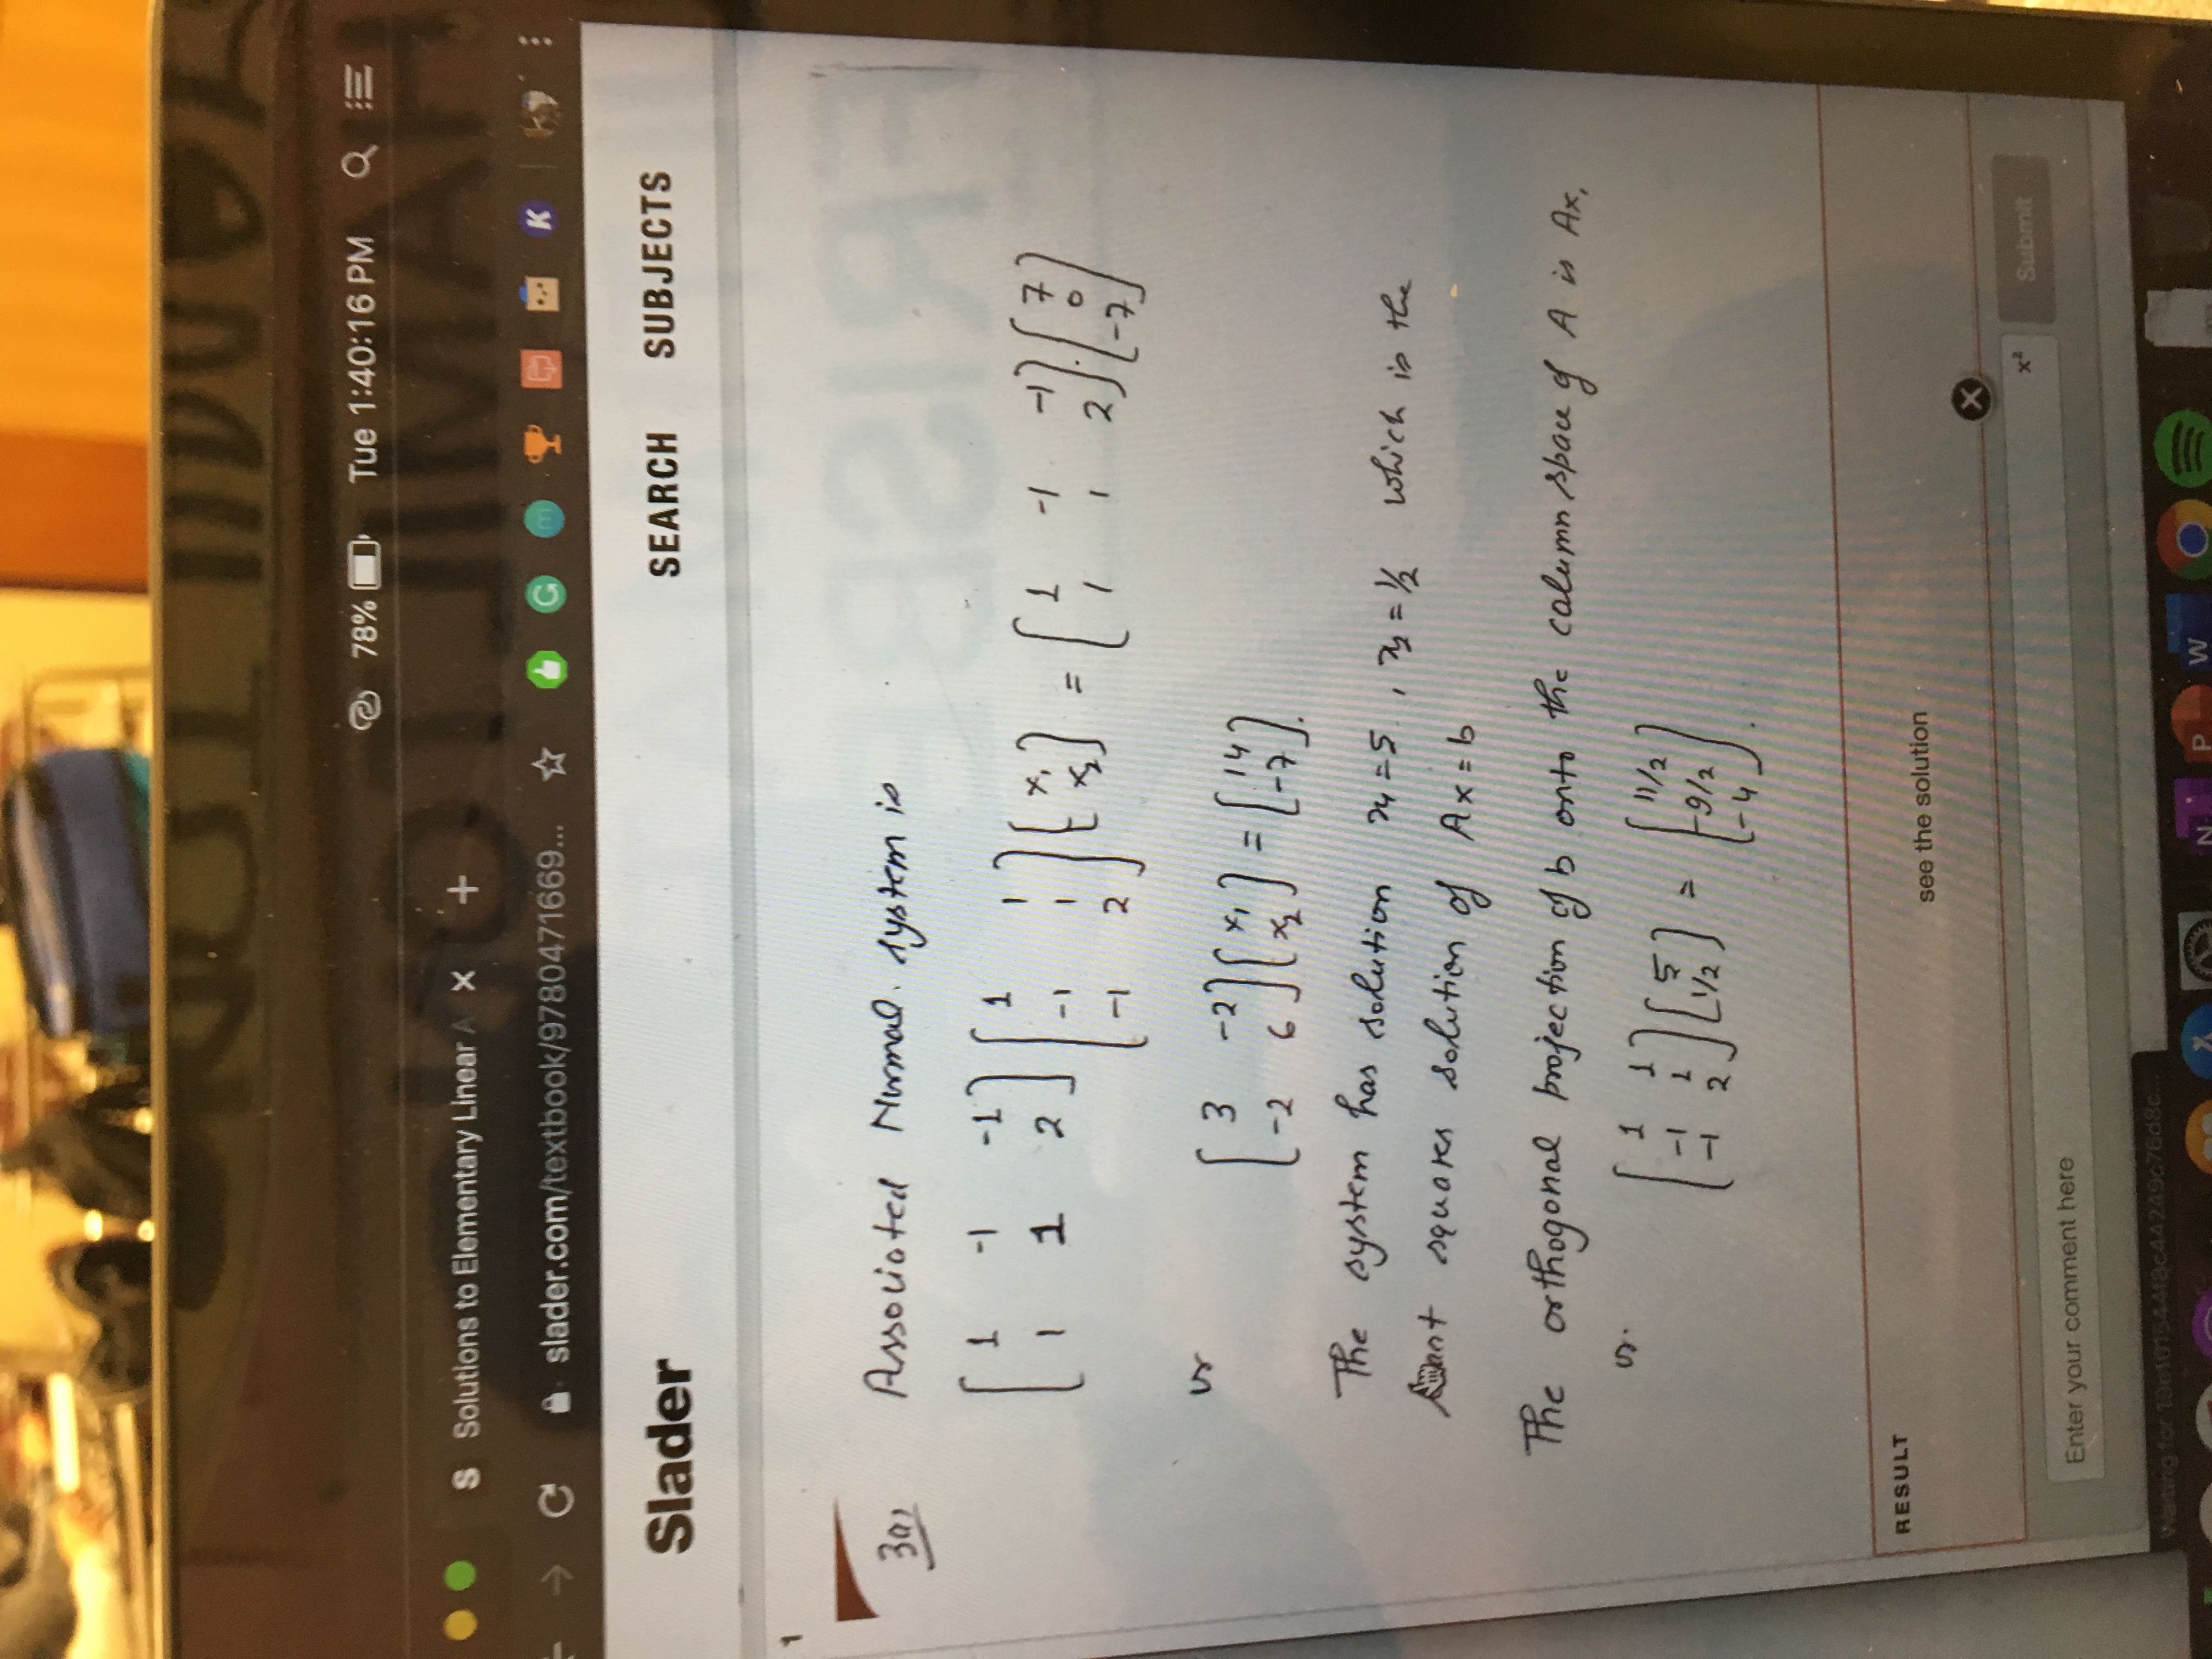 78% Tue 1:40:16 PM
S Solutions to Elementary Linear A
slader.com/textbook/9780471669...
K
Slader SEARCH SUBJECTS
1
3a) Associated Normal. system is
[1 -1 -1; 1 1 2] [1 1; -1 1; -1 2] [x₁; x₂] = [1 -1 -1; 1 1 2] · [7; 0; -7]
or [3 -2; -2 6] [x₁; x₂] = [14; -7].
The system has solution x₁ = 5, x₂ = 1/2 which is the
squares solution of Ax = b
The orthogonal projection of b onto the column space of A is Ax,
or. [1 1; -1 1; -1 2] [5; 1/2] = [11/2; -9/2; -4].
RESULT
see the solution
x² Submit
Enter your comment here
N P W